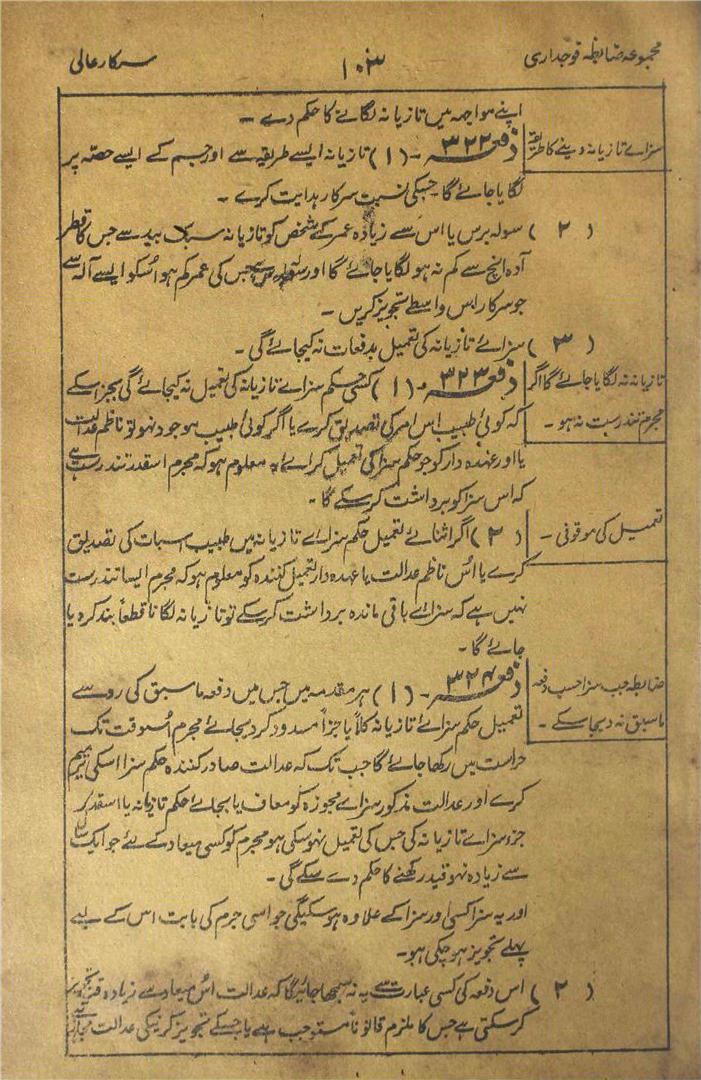 مجموعہ ضابطہ فوجداری ۱۰۳ سرکار عالی
اپنے مواجہہ میں تازیانہ لگانے کا حکم دے ۔
سزائے تازیانہ دینے کا طریقہ
دفعہ ۳۲۲ ۔ (۱) تازیانہ ایسے طریقہ سے اور جسم کے ایسے حصہ پر
لگایا جائے گا جسکی نسبت سرکار ہدایت کرے ۔
(۲) سولہ برس یا اس سے زیادہ عمر کے شخص کو تازیانہ سبک بید سے جس کا قطر
آدہ انچ سے کم نہ ہو لگایا جائے گا اور سولہ برس سے جس کی عمر کم ہو اُسکو ایسے آلہ سے
جو سرکار اس واسطے تجویز کریں ۔
(۳) سزائے تازیانہ کی تعمیل بدفعات نہ کیجائے گی ۔
تازیانہ نہ لگایا جائے گا اگر
مجرم تندرست نہ ہو ۔
دفعہ ۳۲۳ ۔ (۱) کسی حکم سزائے تازیانہ کی تعمیل نہ کیجائے گی بجز اسکے
کہ کوئی طبیب اس امر کی تصدیق کرے یا اگر کوئی طبیب موجود نہو تو ناظم عدالت
یا اور عہدہ دار کو جو حکم سزا کی تعمیل کرائے یہ معلوم ہو کہ مجرم اسقدر تندرست ہے
کہ اس سزا کو برداشت کر سکے گا ۔
تعمیل کی موقوفی ۔
(۲) اگر اثنائے تعمیل حکم سزائے تازیانہ میں طبیب اسبات کی تصدیق
کرے یا اُس ناظم عدالت یا عہدہ دار تعمیل کنندہ کو معلوم ہو کہ مجرم ایسا تندرست
نہیں ہے کہ سزائے باقی ماندہ برداشت کر سکے تو تازیانہ لگانا قطعاً بند کر دیا
جائے گا ۔
ضابطہ جب سزا حسب دفعہ
ماسبق نہ دیجا سکے ۔
دفعہ ۳۲۴ ۔ (۱) ہر مقدمہ میں جس میں دفعہ ماسبق کی رو سے
تعمیل حکم سزائے تازیانہ کلاً یا جزاً مسدود کر دیجائے مجرم اُسوقت تک
حراست میں رکھا جائے گا جب تک کہ عدالت صادر کنندہ حکم سزا اسکی ترمیم
کرے اور عدالت مذکور سزائے مجوزہ کو معاف یا بجائے حکم تازیانہ یا اسقدر
جزو سزائے تازیانہ کی جس کی تعمیل نہوسکی ہو مجرم کو کسی میعاد کے لئے جو ایک سال
سے زیادہ نہو قید رکھنے کا حکم دے سکے گی ۔
اور یہ سزا کسی اور سزا کے علاوہ ہو سکیگی جو اسی جرم کی بابت اس کے لیے
پہلے تجویز ہو چکی ہو ۔
(۲) اس دفعہ کی کسی عبارت سے یہ نہ سمجھا جائیگا کہ عدالت اُس میعاد سے زیادہ قید تجویز
کر سکتی ہے جس کا ملزم قانوناً مستوجب ہے یا جسکے تجویز کرنیکی عدالت مجاز ہے